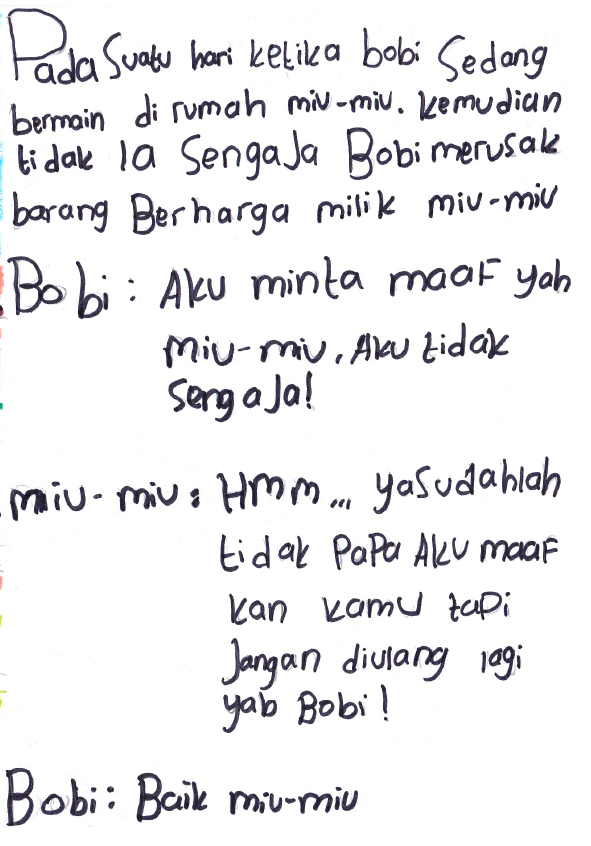 Pada Suatu hari ketika bobi Sedang
bermain di rumah miu-miu. kemudian
tidak Ia SengaJa Bobi merusak
barang Berharga milik miu-miu
Bobi: Aku minta maaF yah
miu-miu, Aku tidak
SengaJa!
miu-miu: HMM... yaSudahlah
tidak PaPa AKU maaF
kan kamu tapi
Jangan diulang lagi
yab Bobi!
Bobi: Baik miu-miu